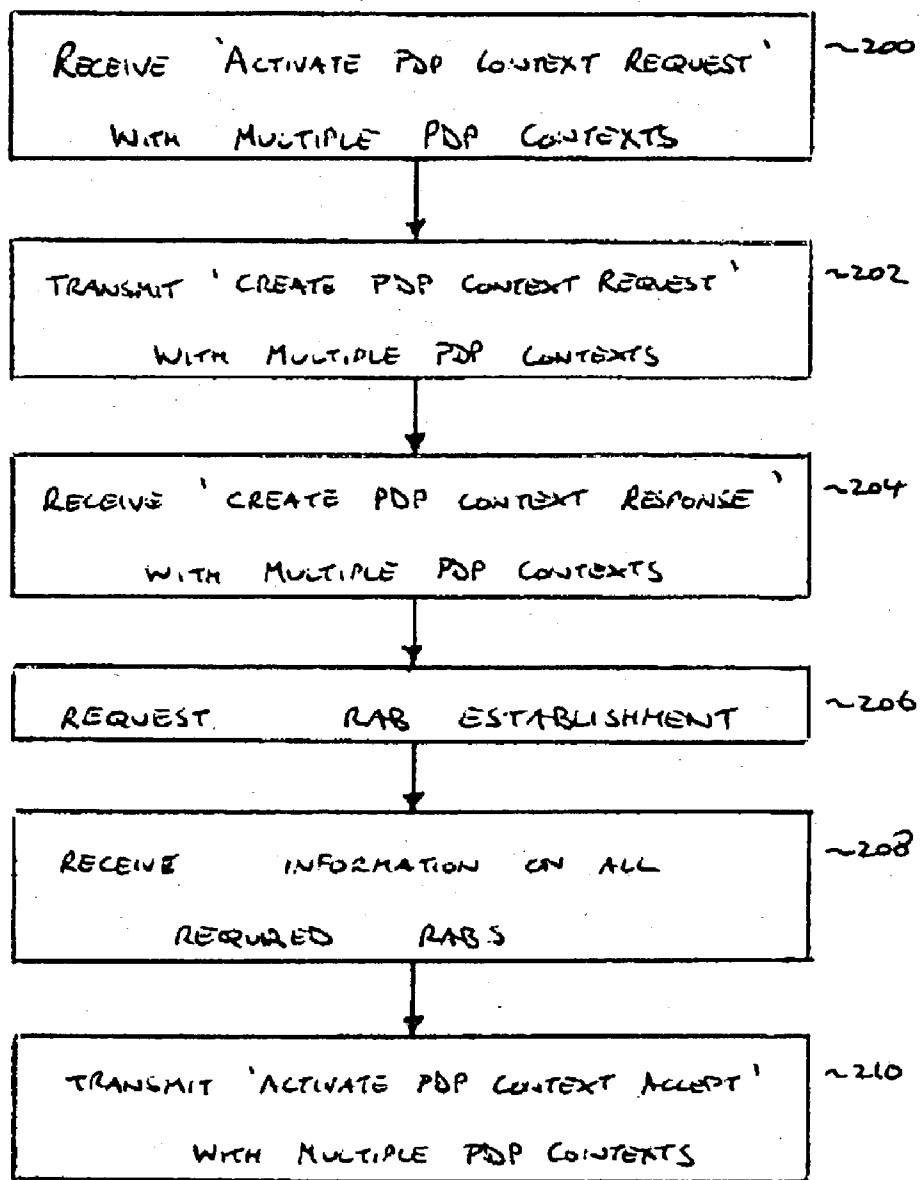 RECEIVE 'ACTIVATE PDP CONTEXT REQUEST' ~200
WITH MULTIPLE PDP CONTEXTS
TRANSMIT 'CREATE PDP CONTEXT REQUEST' ~202
WITH MULTIPLE PDP CONTEXTS
RECEIVE 'CREATE PDP CONTEXT RESPONSE' ~204
WITH MULTIPLE PDP CONTEXTS
REQUEST RAB ESTABLISHMENT ~206
RECEIVE INFORMATION ON ALL ~208
REQUIRED RABS
TRANSMIT 'ACTIVATE PDP CONTEXT ACCEPT' ~210
WITH MULTIPLE PDP CONTEXTS